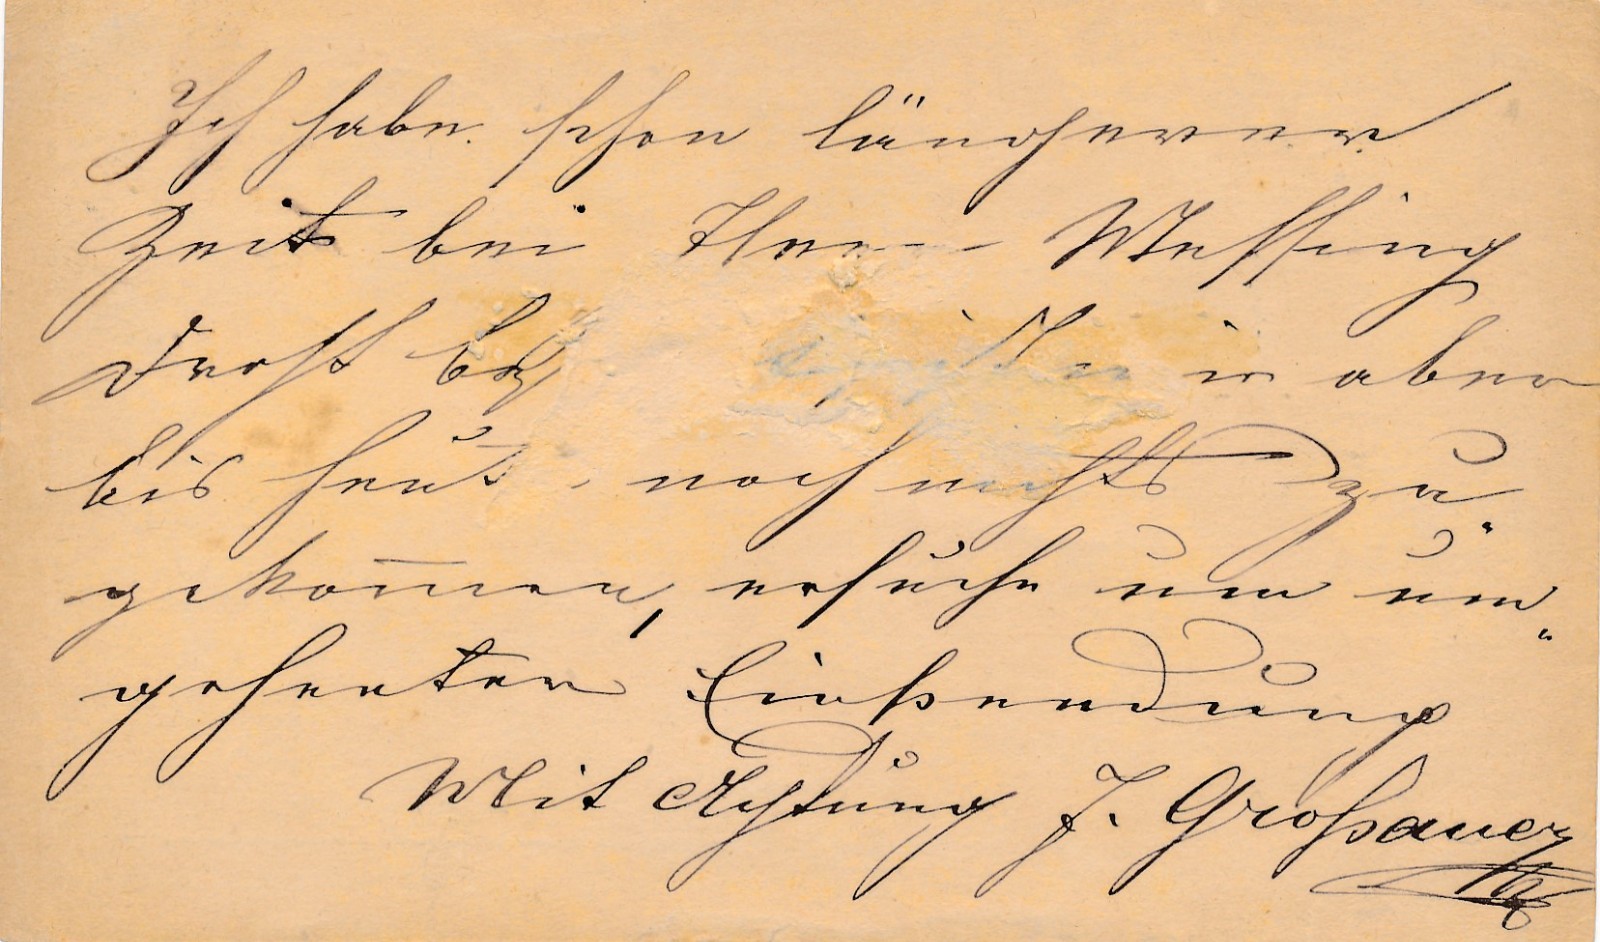 Ich habe schon längerer
Zeit bei Ihnen Messing
Draht be ir aber
bis heut noch nichts zu„
gekom̄en, ersuche um um„
gehenten Einsendung
Mit Achtung J. Großauer